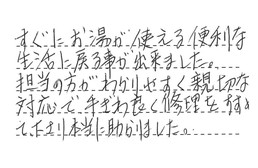 すぐにお湯が使える便利な
生活に戻る事が出来ました。
担当の方がわかりやすく親切な
対応で手ぎわ良く修理をし
て下さり本当に助かりました。